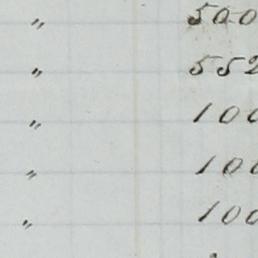 " 500
" 552
" 100
" 100
" 100